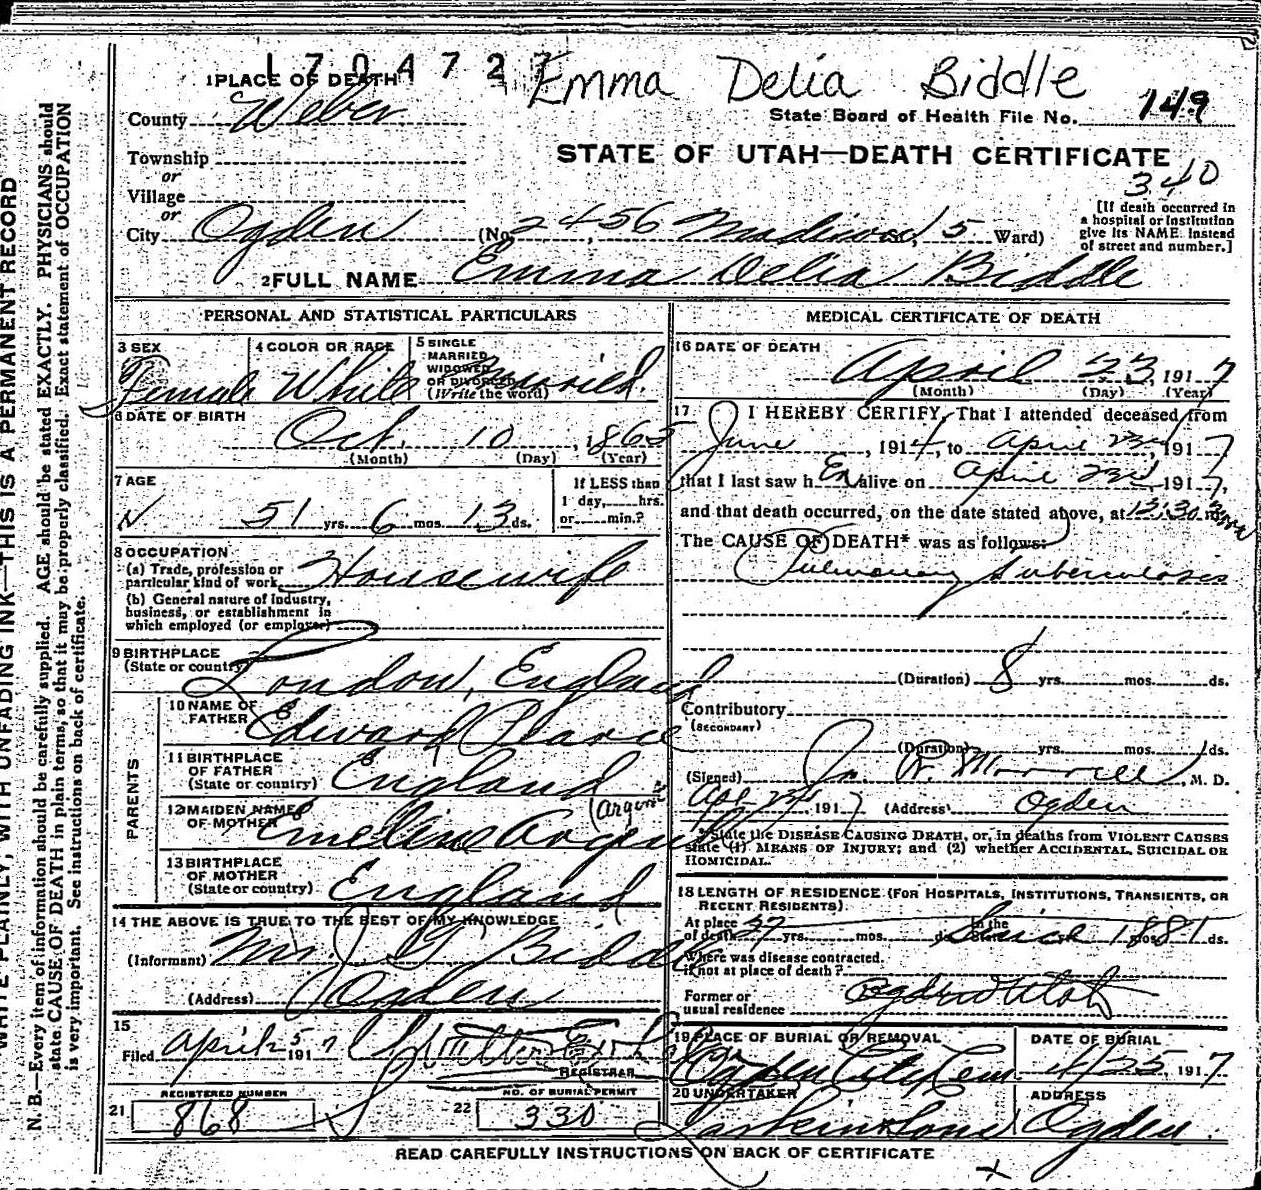 1704727 Emma Delia Biddle
1 PLACE OF DEATH
County Weber
State Board of Health File No. 149
Township
STATE OF UTAH—DEATH CERTIFICATE
or
Village
340
or
City Ogden (No. 2456 Madison, 5 Ward)
[If death occurred in
a hospital or institution
give its NAME instead
of street and number.]
2 FULL NAME Emma Delia Biddle
PERSONAL AND STATISTICAL PARTICULARS
3 SEX
Female
4 COLOR OR RACE
White
5 SINGLE
MARRIED
WIDOWED
OR DIVORCED
(Write the word)
Married.
6 DATE OF BIRTH
Oct. 10, 1865
(Month) (Day) (Year)
7 AGE
51 yrs. 6 mos. 13 ds.
If LESS than
1 day, hrs.
or min.?
8 OCCUPATION
(a) Trade, profession or
particular kind of work Housewife
(b) General nature of industry,
business, or establishment in
which employed (or employer)
9 BIRTHPLACE
(State or country)
London, England
PARENTS
10 NAME OF
FATHER Edward Pearce
11 BIRTHPLACE
OF FATHER
(State or country) England
12 MAIDEN NAME
OF MOTHER Emeline
13 BIRTHPLACE
OF MOTHER
(State or country) England
14 THE ABOVE IS TRUE TO THE BEST OF MY KNOWLEDGE
(Informant) Mr. J G Biddle
(Address) Ogden
15
Filed April 5 1917
REGISTRAR
REGISTERED NUMBER
21 868
NO. OF BURIAL PERMIT
22 330
MEDICAL CERTIFICATE OF DEATH
16 DATE OF DEATH
April 23, 1917
(Month) (Day) (Year)
17 I HEREBY CERTIFY, That I attended deceased from
June, 1914, to April 23d, 1917
that I last saw h er alive on April 23d, 1917,
and that death occurred, on the date stated above, at 12:30 m.
The CAUSE OF DEATH* was as follows:
Pulmonary Tuberculosis
(Duration) 8 yrs. mos. ds.
Contributory
(SECONDARY)
(Duration) yrs. mos. ds.
(Signed) Jn. R. Morrell, M. D.
Apr 24, 1917 (Address) Ogden
*State the DISEASE CAUSING DEATH, or, in deaths from VIOLENT CAUSES
state (1) MEANS OF INJURY; and (2) whether ACCIDENTAL, SUICIDAL OR
HOMICIDAL.
18 LENGTH OF RESIDENCE (FOR HOSPITALS, INSTITUTIONS, TRANSIENTS, OR
RECENT RESIDENTS)
At place
of death yrs. mos. ds. In the State Since 1881 mos. ds.
Where was disease contracted,
if not at place of death?
Former or
usual residence Ogden Utah
19 PLACE OF BURIAL OR REMOVAL
Ogden City Cem.
DATE OF BURIAL
4/25, 1917
20 UNDERTAKER
Larkin & Sons
ADDRESS
Ogden.
READ CAREFULLY INSTRUCTIONS ON BACK OF CERTIFICATE
WRITE PLAINLY, WITH UNFADING INK—THIS IS A PERMANENT RECORD
N. B.—Every item of information should be carefully supplied. AGE should be stated EXACTLY. PHYSICIANS should
state CAUSE OF DEATH in plain terms, so that it may be properly classified. Exact statement of OCCUPATION
is very important. See instructions on back of certificate.